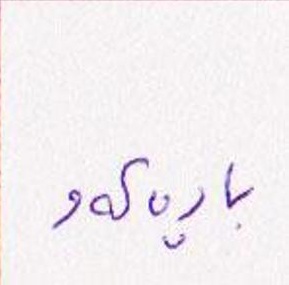 باریەکەو